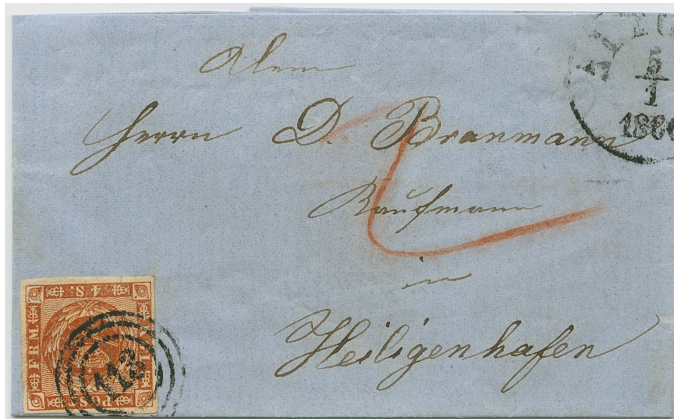 Dem
Herrn D. Branmann
Kaufmann
in
Heiligenhafen
5
1
1860
4.S:
FRM.
113